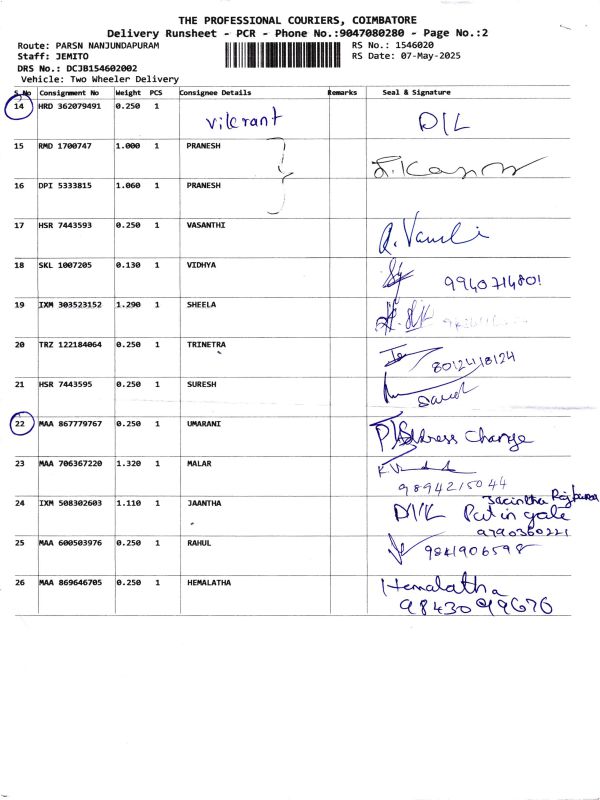 THE PROFESSIONAL COURIERS, COIMBATORE
Delivery Runsheet - PCR - Phone No.:9047080280 - Page No.:2
Route: PARSN NANJUNDAPURAM RS No.: 1546020
Staff: JEMITO RS Date: 07-May-2025
DRS No.: DCJB154602002
Vehicle: Two Wheeler Delivery
S.No Consignment No Weight PCS Consignee Details Remarks Seal & Signature
14 HRD 362079491 0.250 1 Vikrant D/L
15 RMD 1700747 1.000 1 PRANESH
16 DPI 5333815 1.060 1 PRANESH
17 HSR 7443593 0.250 1 VASANTHI
18 SKL 1007205 0.130 1 VIDHYA 9940714801
19 IXM 303523152 1.290 1 SHEELA
20 TRZ 122184064 0.250 1 TRINETRA 8012418124
21 HSR 7443595 0.250 1 SURESH
22 MAA 867779767 0.250 1 UMARANI Address Change
23 MAA 706367220 1.320 1 MALAR
9894215044
24 IXM 508302603 1.110 1 JAANTHA Jacintha
D/L Put in gate
9790360221
25 MAA 600503976 0.250 1 RAHUL 9841906598
26 MAA 869646705 0.250 1 HEMALATHA Hemalatha
9843099676